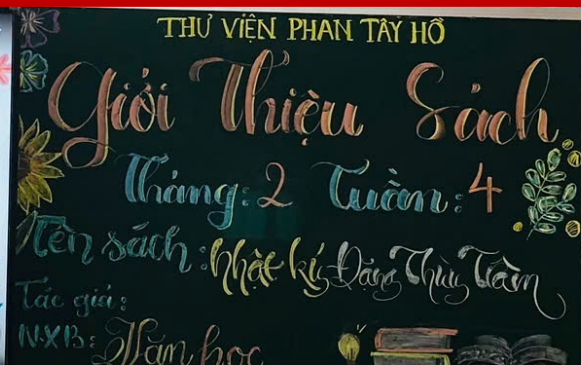 THƯ VIỆN PHAN TÂY HỒ
Giới Thiệu Sách
Tháng: 2 Tuần: 4
Tên sách: Nhật kí Đặng Thùy Trâm
Tác giả:
NXB: Văn học